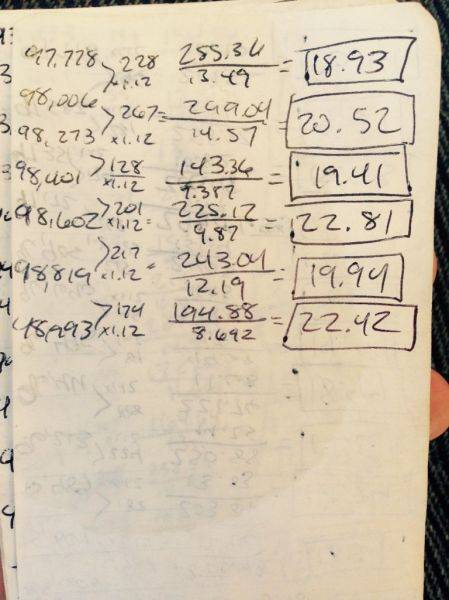 97.778 > 228 255.36 = 18.93
x1.12 13.49
98,006 > 267 = 299.04 = 20.52
98,273 x1.12 14.57
98,401 > 128 143.36 = 19.41
x1.12 7.387
98,602 > 201 225.12 = 22.81
x1.12 = 9.87
98,819 > 217 243.04 = 19.94
x1.12 = 12.19
98,993 > 174 194.88 = 22.42
x1.12 8.692